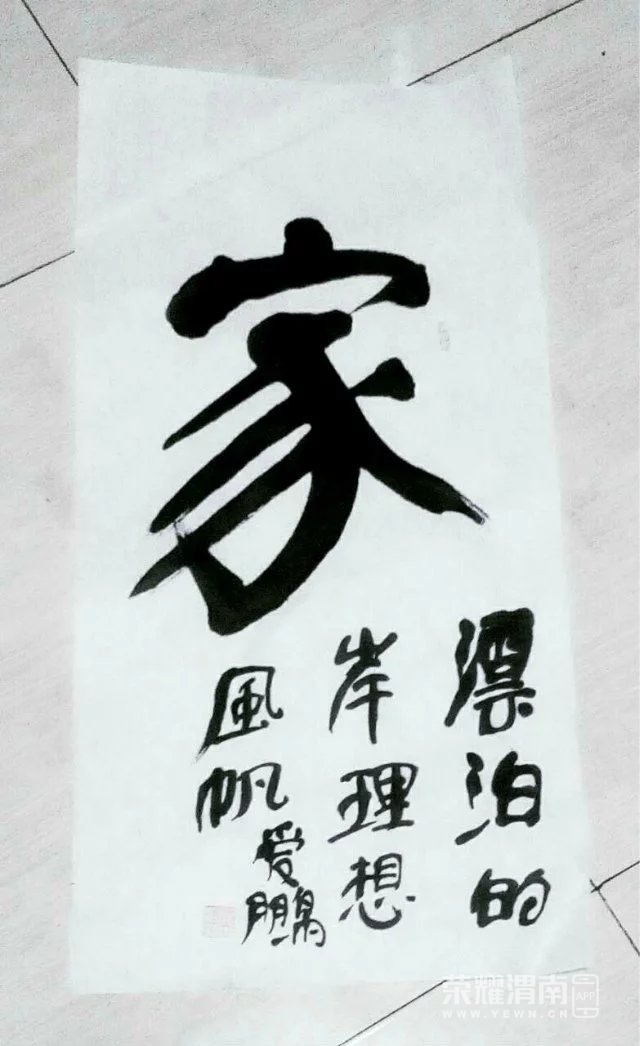 家
漂泊的
岸理想
風帆
爱鹏
荣耀渭南
APP
WWW.YEWN.CN